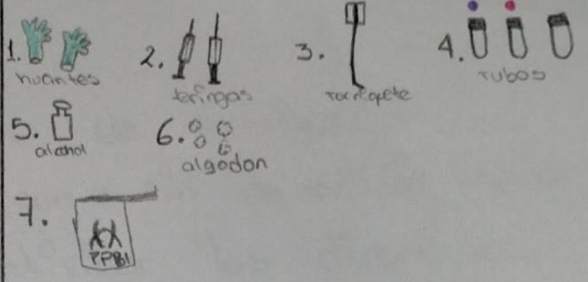 1. 2. 3. 4.
nuantes jeringas torniquete Tubos
5. 6.
alcohol algodon
7.
RPBI